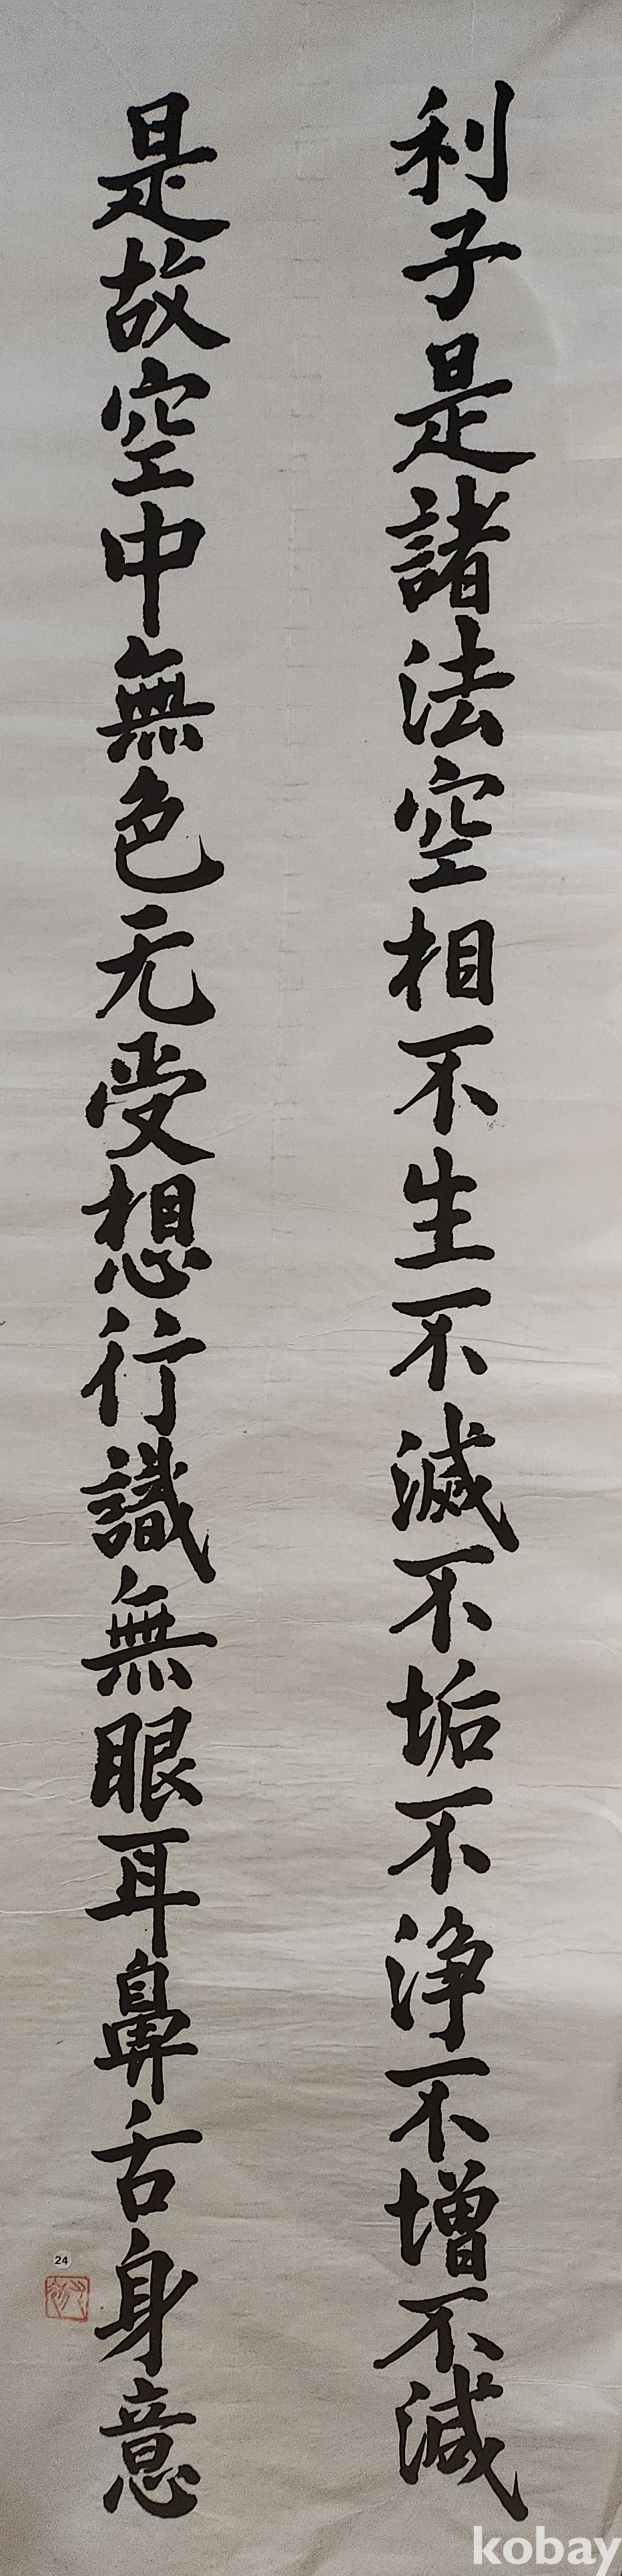 利子是諸法空相不生不滅不垢不淨不增不減
是故空中無色无受想行識無眼耳鼻舌身意
24
kobay